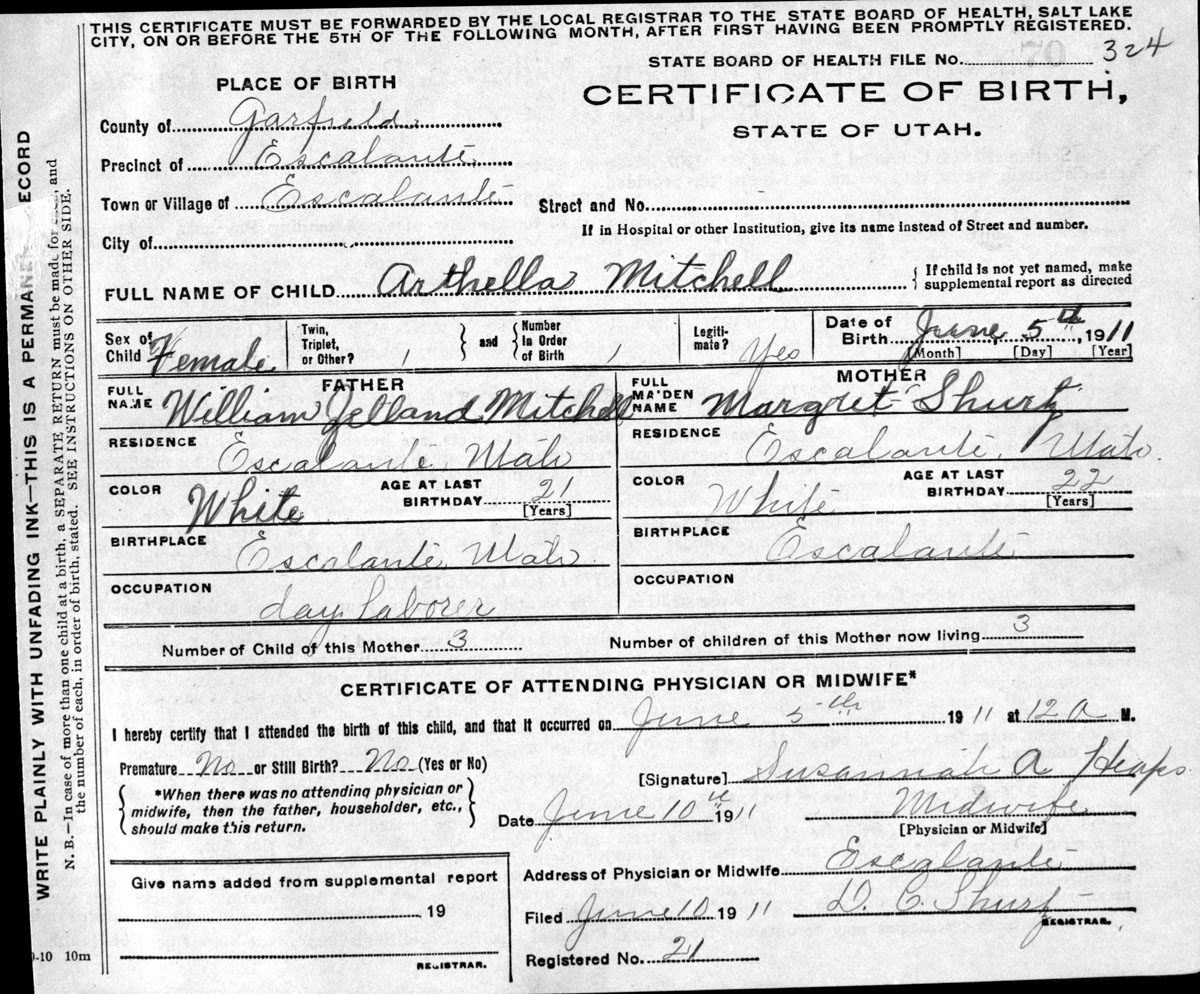 THIS CERTIFICATE MUST BE FORWARDED BY THE LOCAL REGISTRAR TO THE STATE BOARD OF HEALTH, SALT LAKE
CITY, ON OR BEFORE THE 5TH OF THE FOLLOWING MONTH, AFTER FIRST HAVING BEEN PROMPTLY REGISTERED.
STATE BOARD OF HEALTH FILE No. 324
PLACE OF BIRTH
CERTIFICATE OF BIRTH,
STATE OF UTAH.
County of Garfield
Precinct of Escalante
Town or Village of Escalante
Street and No.
City of
If in Hospital or other Institution, give its name instead of Street and number.
FULL NAME OF CHILD Arthella Mitchell
{ If child is not yet named, make
supplemental report as directed
Sex of Child Female
Twin, Triplet, or Other? 1
and
Number In Order of Birth 1
Legiti-mate? Yes
Date of Birth June 5th, 1911
[Month] [Day] [Year]
FATHER
FULL NAME William Jelland Mitchell
MOTHER
FULL MAIDEN NAME Margret Shurtz
RESIDENCE Escalante Utah
RESIDENCE Escalante, Utah.
COLOR White
AGE AT LAST BIRTHDAY 21 [Years]
COLOR White
AGE AT LAST BIRTHDAY 22 [Years]
BIRTHPLACE Escalante Utah
BIRTHPLACE Escalante
OCCUPATION day laborer
OCCUPATION
Number of Child of this Mother 3
Number of children of this Mother now living 3
CERTIFICATE OF ATTENDING PHYSICIAN OR MIDWIFE*
I hereby certify that I attended the birth of this child, and that it occurred on June 5th 1911 at 12 a M.
Premature No or Still Birth? No (Yes or No)
[Signature] Susannah A Heaps
{ *When there was no attending physician or
midwife, then the father, householder, etc.,
should make this return. }
Date June 10th 1911
Midwife
[Physician or Midwife]
Give name added from supplemental report
19
REGISTRAR.
Address of Physician or Midwife Escalante
Filed June 10 1911
D. C. Shurtz
REGISTRAR.
Registered No. 21
-10 10m
WRITE PLAINLY WITH UNFADING INK—THIS IS A PERMANE ECORD
N. B.—In case of more than one child at a birth, a SEPARATE RETURN must be made for , and
the number of each, in order of birth, stated. SEE INSTRUCTIONS ON OTHER SIDE.